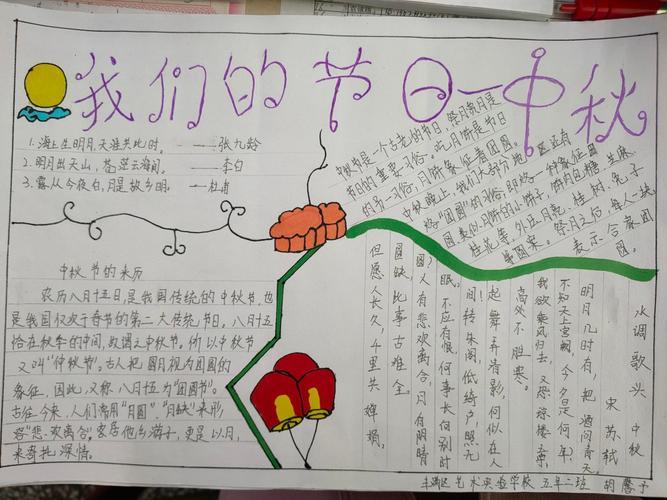 我们的节日—中秋
1.海上生明月,天涯共此时。——张九龄
2.明月出天山,苍茫云海间。——李白
3.露从今夜白,月是故乡明。——杜甫
中秋节的来历
农历八月十五日,是我国传统的中秋节,也
是我国仅次于春节的第二大传统节日。八月十五
恰在秋季的中间,故谓之中秋节。所以中秋节
又叫"仲秋节"。古人把圆月视为团圆的
象征,因此,又称八月十五为"团圆节"。
古往今来,人们常用"月圆""月缺"来形
容"悲欢离合"。客居他乡游子,更是以月,
来寄托深情。
中秋节是一个古老的节日,祭月赏月是
节日的重要习俗。吃月饼是节日
的另一习俗,月饼象征着团圆。
中秋晚上,我们大部分地区还有
烙"团圆"的习俗,即烙一种象征团
圆、类似月饼的小饼子,饼内包糖、芝麻、
桂花等,外压月亮、桂树、兔子
等图案。祭月之后,每人一块,
表示合家团
圆。
水调歌头 中秋
宋 苏轼
明月几时有,把酒问青天。
不知天上宫阙,今夕是何年。
我欲乘风归去,又恐琼楼玉宇,
高处不胜寒。
起舞弄清影,何似在人
间!转朱阁,低绮户,照无
眠。不应有恨,何事长向别时
圆?人有悲欢离合,月有阴晴
圆缺,此事古难全。
但愿人长久,千里共婵娟。
丰满区艺术实验学校 五年二班 胡馨予